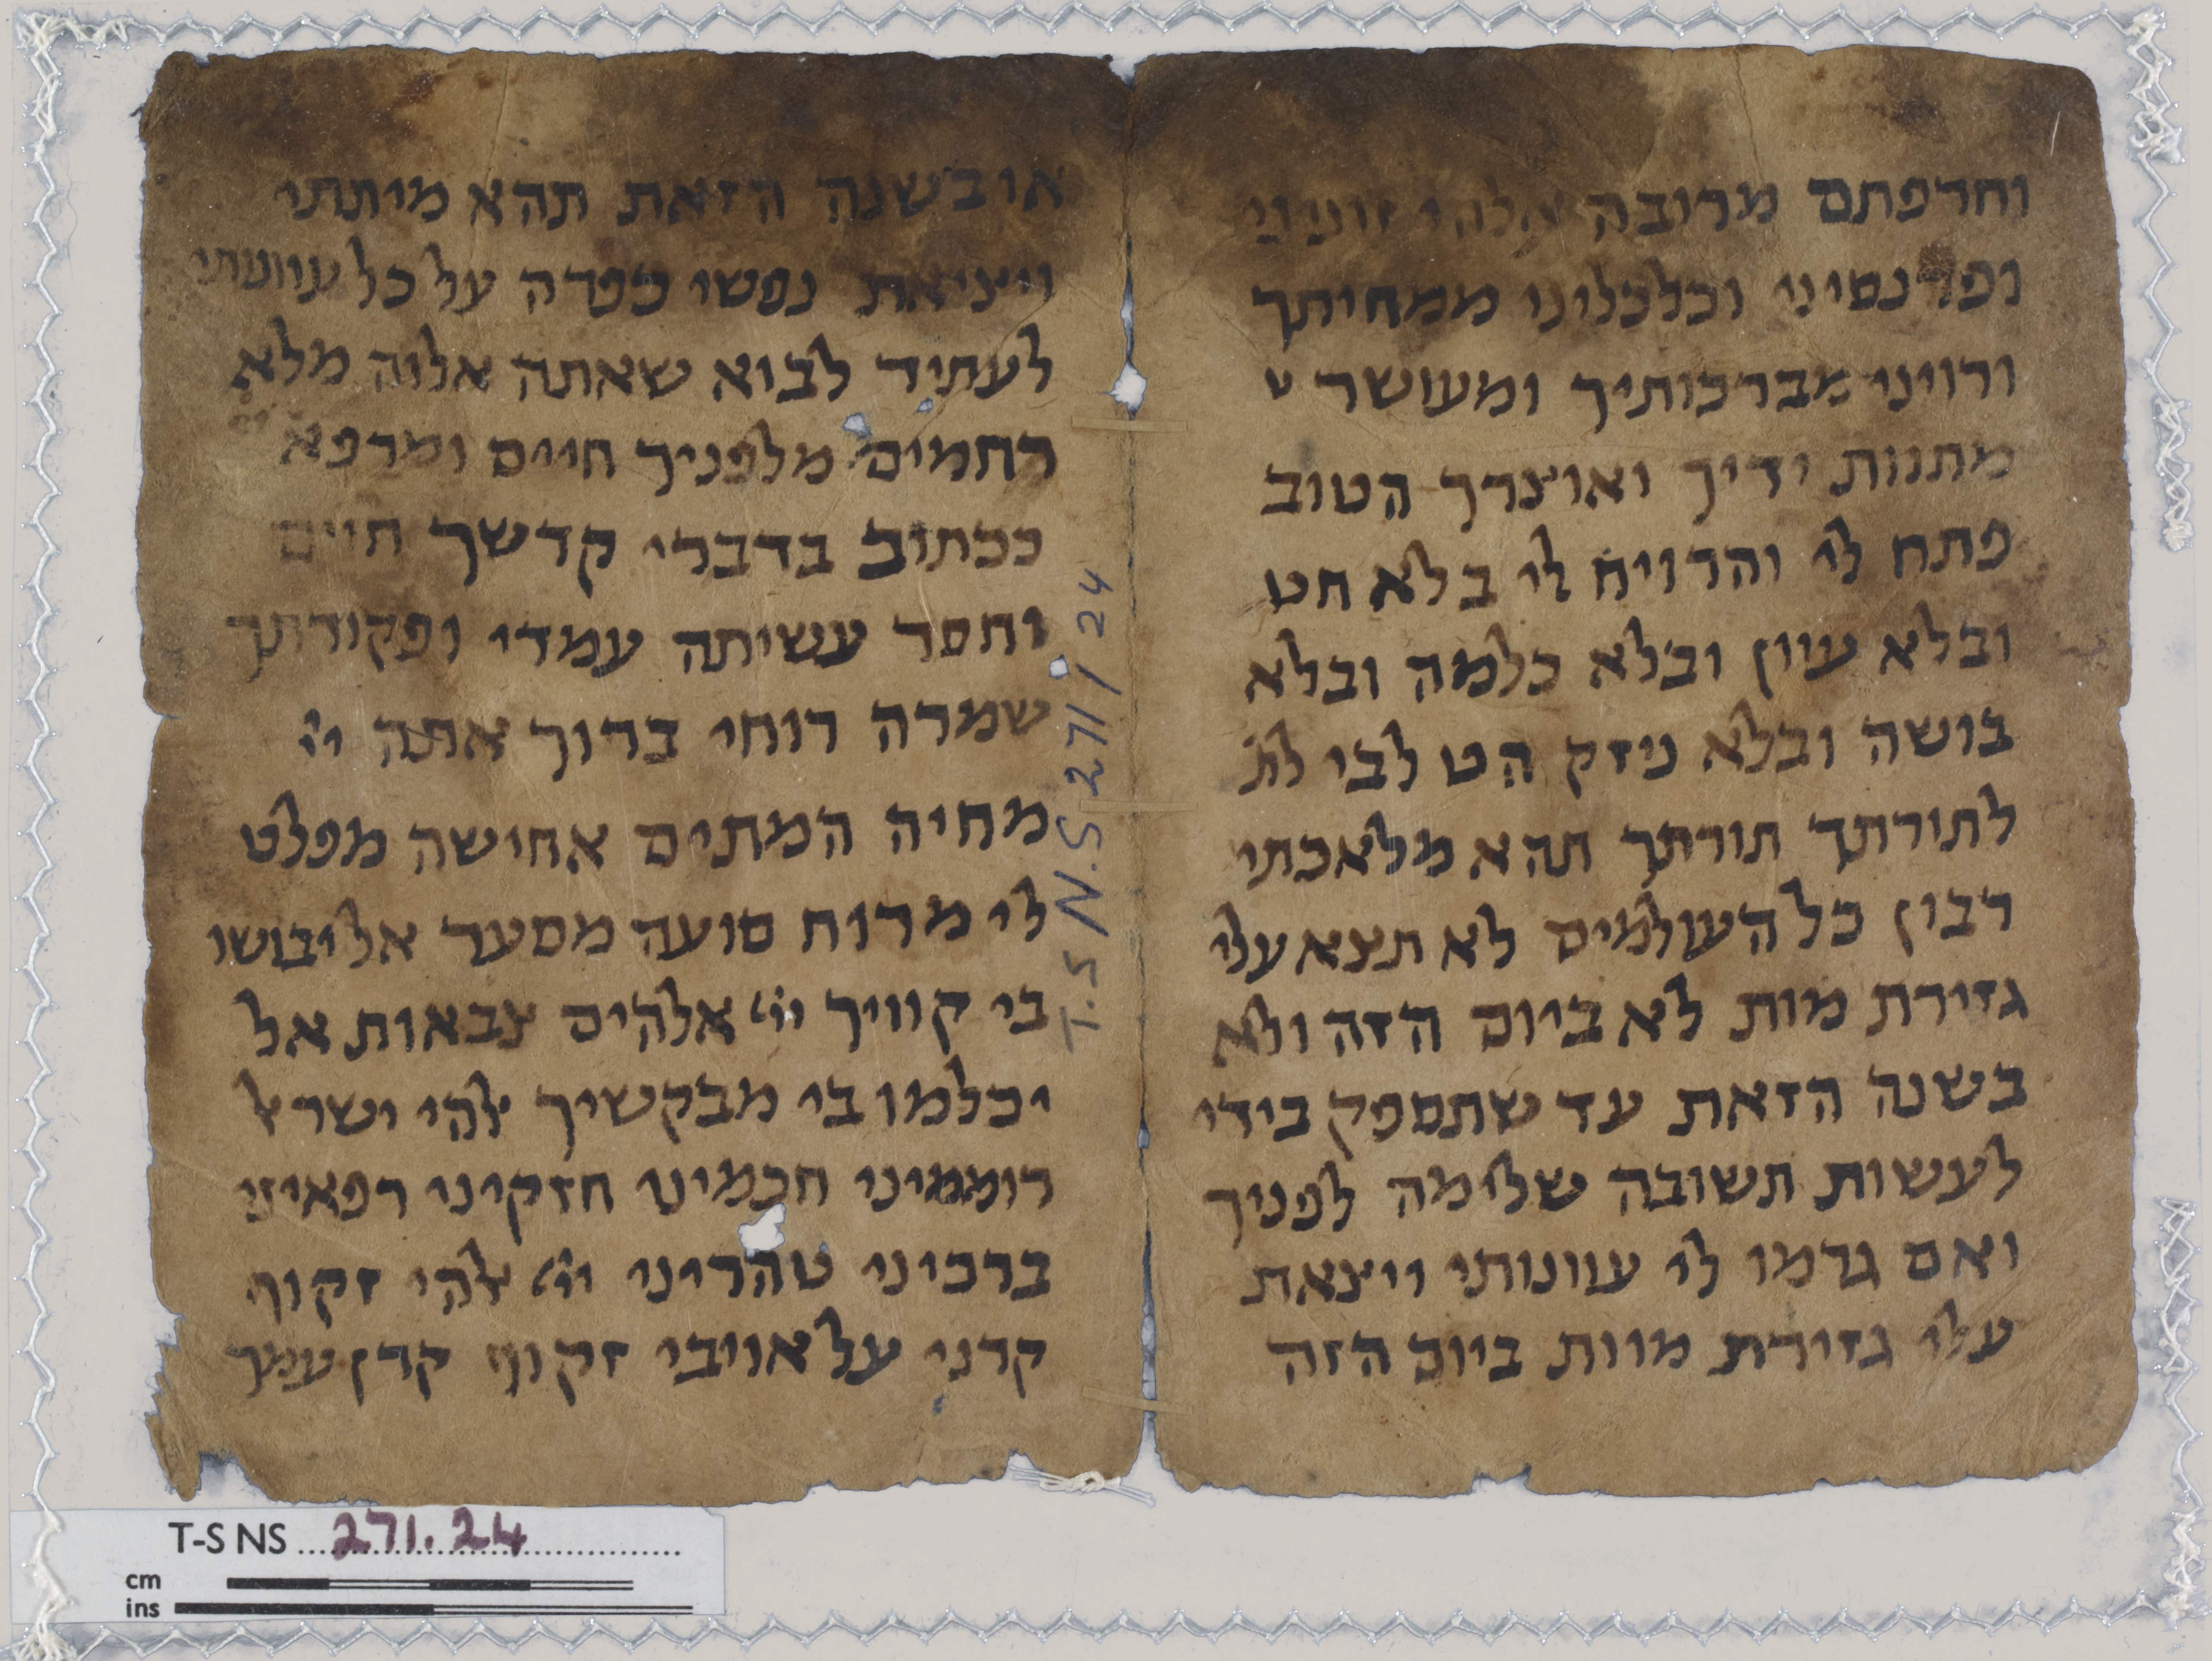 וחרפתם מרובה אלהי זונני
ופרנסיני וכלכליני ממחיתך
ורויני מברכותיך ומעושר
מתנות ידיך ואוצרך הטוב
פתח לי והרויח לי בלא חט
ובלא עוון ובלא כלמה ובלא
בושה ובלא ניזק הט לבי לת
לתורתך תורתך תהא מלאכתי
רבון כל העולמים לא תצא עלי
גזירת מות לא ביום הזה ולא
בשנה הזאת עד שתספק בידי
לעשות תשובה שלימה לפניך
ואם גרמו לי עוונותי ויצאת
עלי גזירת מוות ביום הזה
או בשנה הזאת תהא מיתתי
ויציאת נפשי כפרה על כל עוונותי
לעתיד לבוא שאתה אלוה מלא
רחמים מלפניך חיים ומרפא
ככתוב בדברי קדשך חיים
וחסד עשיתה עמדי ופקודתך
שמרה רוחי ברוך אתה ייי
מחיה המתים אחישה מפלט
לי מרוח סועה מסער אל יבושו
בי קוויך ייי אלהים צבאות אל
יכלמו בי מבקשיך אלהי ישראל
רוממיני חכמיני חזקיני רפאיני
ברכיני טהריני ייי אלהי זקוף
קרני על אויבי זקוף קרן עמך
T.S N.S 271/24
T-S NS 271.24
cm
ins